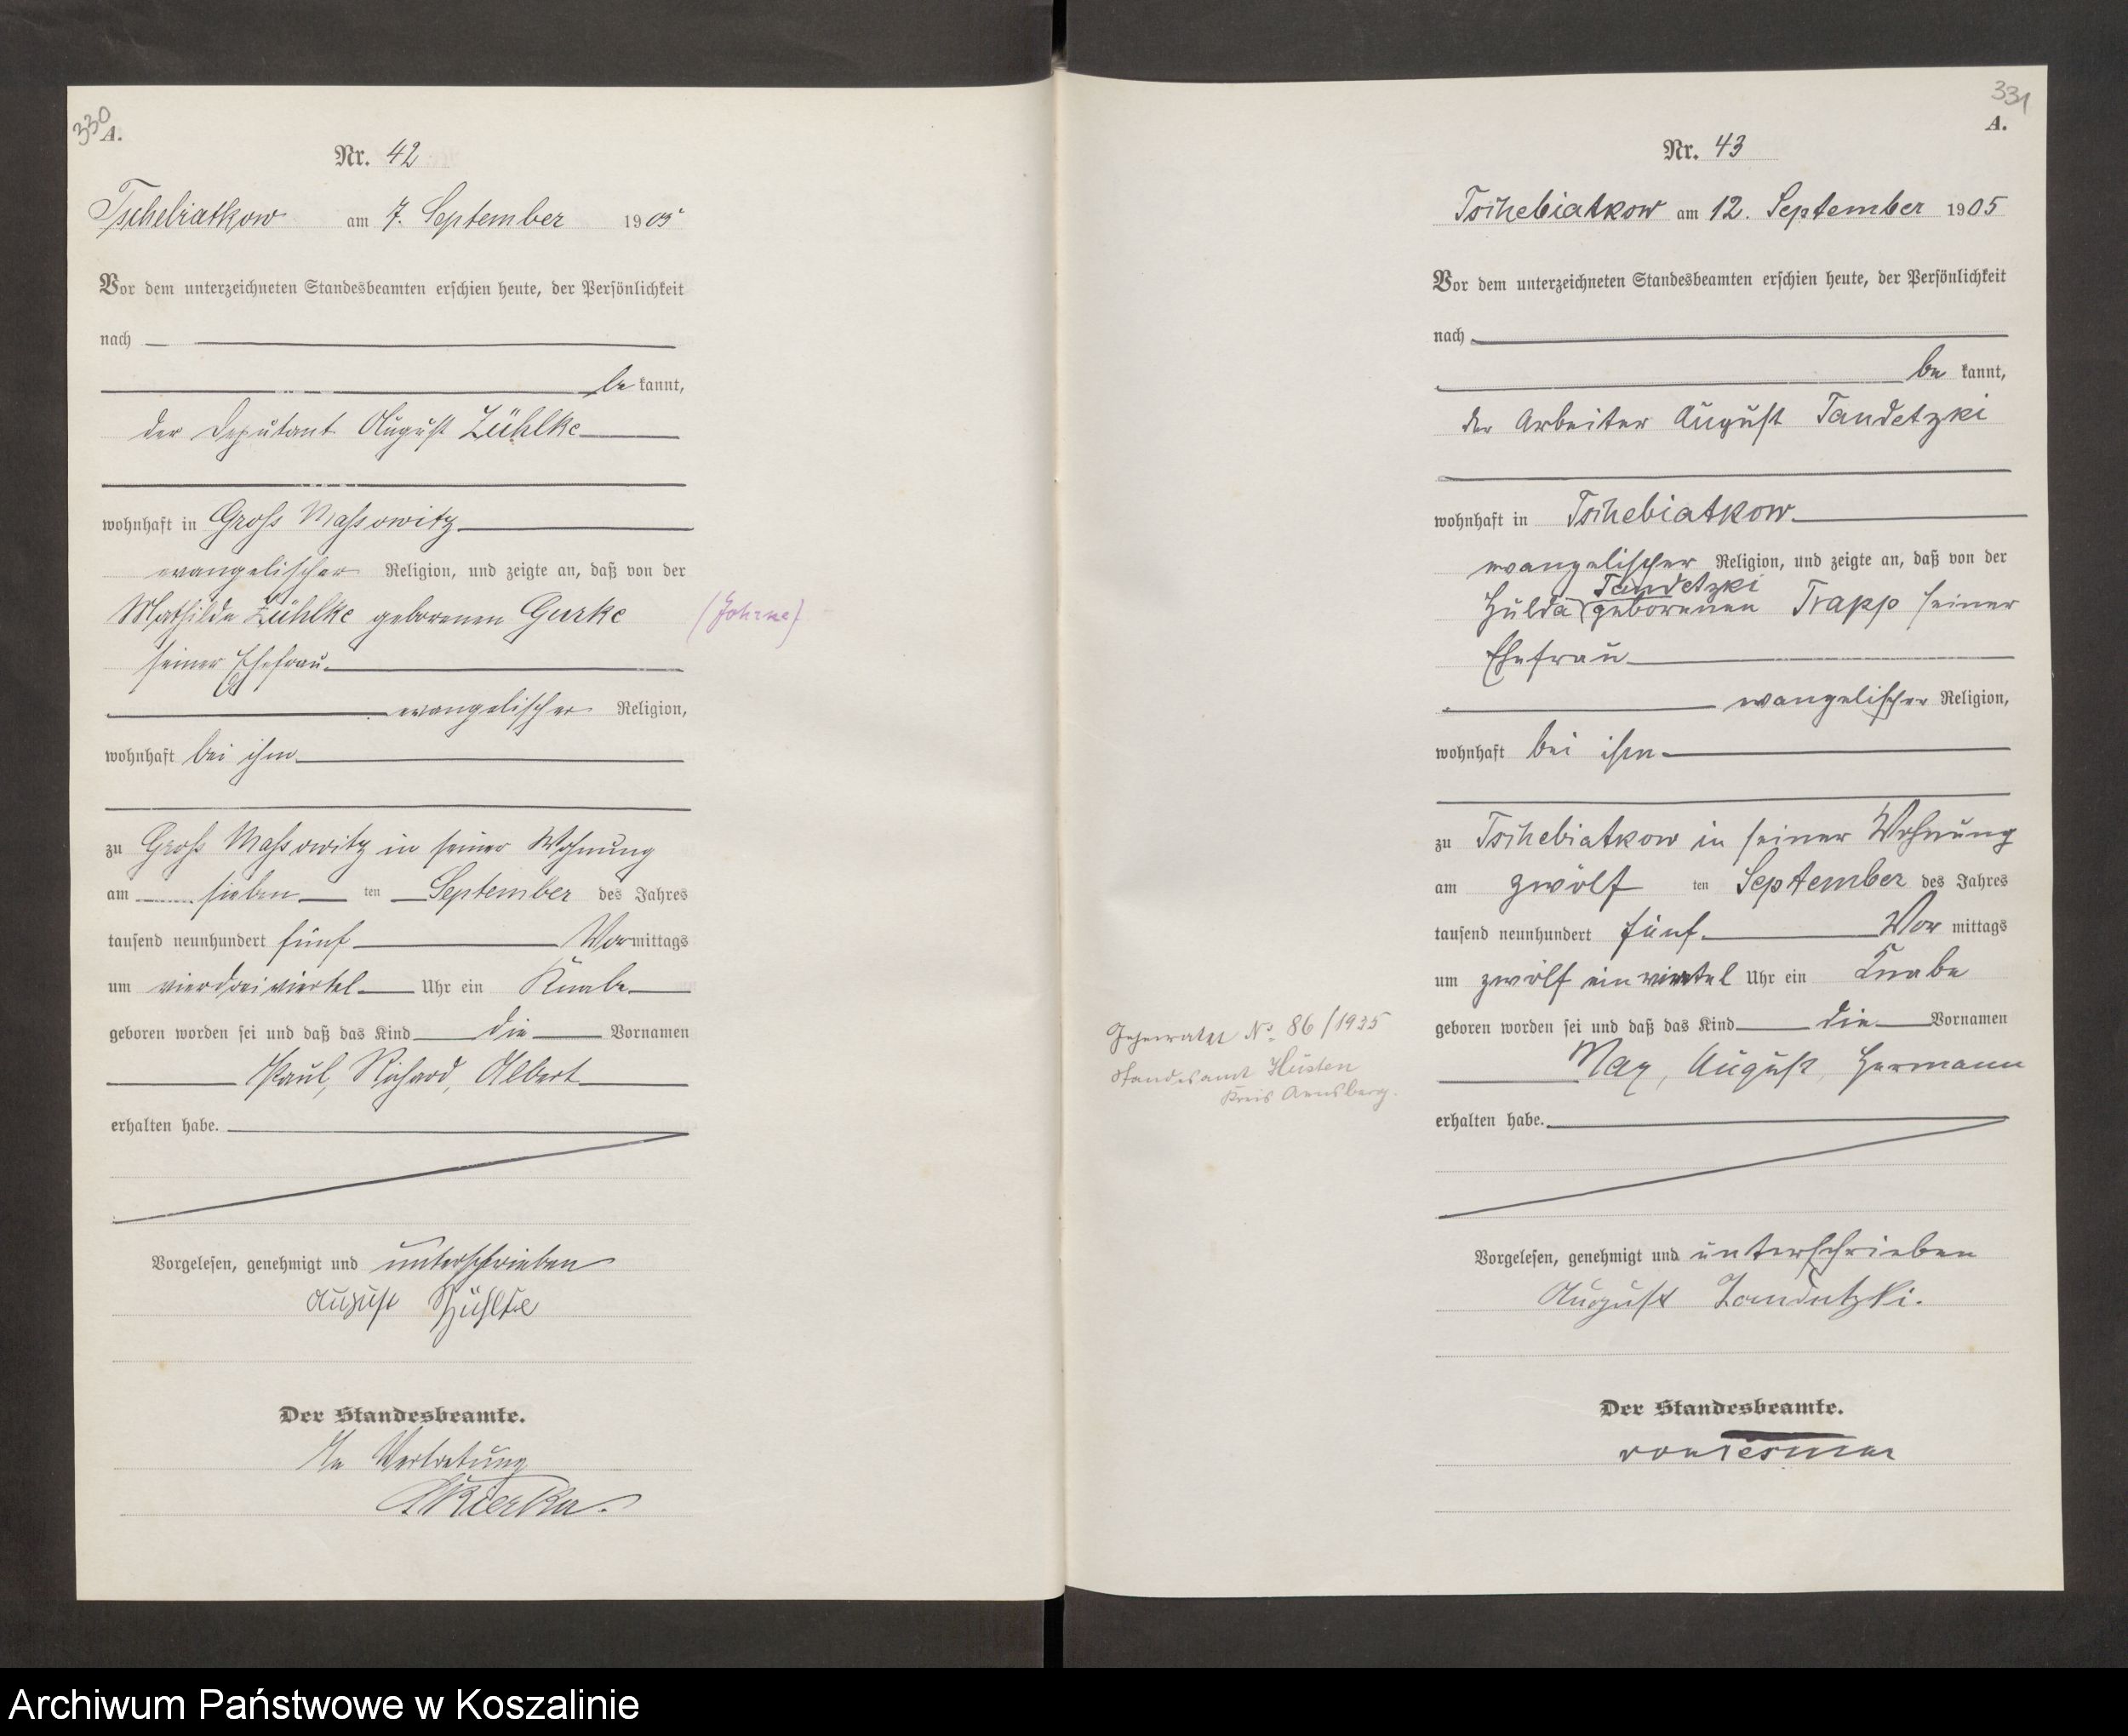 330
A.
Nr. 42
Tschebiatkow am 7. September 1905
Vor dem unterzeichneten Standesbeamten erschien heute, der Persönlichkeit
nach
be kannt,
der Deputant August Zühlke
wohnhaft in Groß Massowitz
evangelischer Religion, und zeigte an, daß von der
Mathilde Zühlke geborenen Gurke (Johrne)
seiner Ehefrau
evangelischer Religion,
wohnhaft bei ihm
zu Groß Massowitz in seiner Wohnung
am sieben ten September des Jahres
tausend neunhundert fünf Vormittags
um vierdreiviertel Uhr ein Knabe
geboren worden sei und daß das Kind die Vornamen
Paul, Richard, Albert
erhalten habe.
Vorgelesen, genehmigt und unterschrieben
August Zühlke
Der Standesbeamte.
In Vertretung
331
A.
Nr. 43
Tschebiatkow am 12. September 1905
Vor dem unterzeichneten Standesbeamten erschien heute, der Persönlichkeit
nach
be kannt,
der Arbeiter August Tandetzki
wohnhaft in Tschebiatkow
evangelischer Religion, und zeigte an, daß von der
Tandetzki
Hulda geborenen Trapp seiner
Ehefrau
evangelischer Religion,
wohnhaft bei ihm
zu Tschebiatkow in seiner Wohnung
am zwölf ten September des Jahres
tausend neunhundert fünf Vor mittags
um zwölf ein viertel Uhr ein Knabe
geboren worden sei und daß das Kind die Vornamen
Max, August, Hermann
erhalten habe.
Geheiratet No 86/1935
Standesamt Hüsten
Kreis Arnsberg.
Vorgelesen, genehmigt und unterschrieben
August Tandetzki.
Der Standesbeamte.
von Tesmar
Archiwum Państwowe w Koszalinie